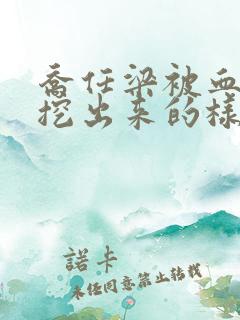 乔任梁被血
挖出来的樣
諾卡
未经同意禁止转载